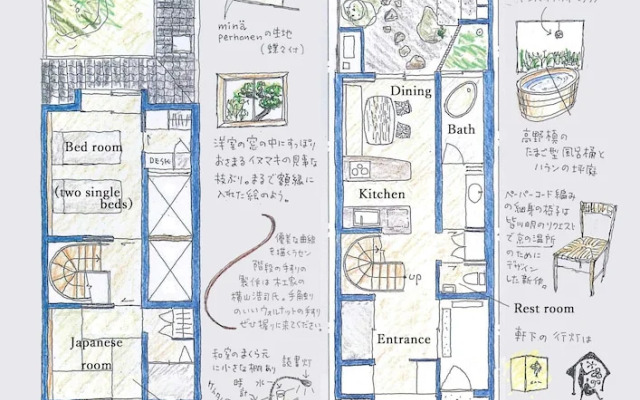 minä
perhonenの生地
(蝶々付)
洋室の窓の中にすっぽり
おさまるイヌマキの見事な
枝ぶり。まるで額縁に
入れた絵のよう。
優美な曲線
を描くラセン
階段の手すりの
製作は木工家の
横山浩司氏。手触り
のいいウォルナットの手すり
ぜひ握りに来てください。
和室のまくら元
に小さな棚あり
時計
読書灯
Bed room
(two single
beds)
DESK
Japanese
room
Dining
Bath
Kitchen
up
Entrance
Rest room
高野槙の
たまご型風呂桶と
ハランの坪庭
ペーパーコード編み
の細身の椅子は
皆川明のリクエスト
で京の温所
のために
デザイン
した新作。
軒下の行灯は